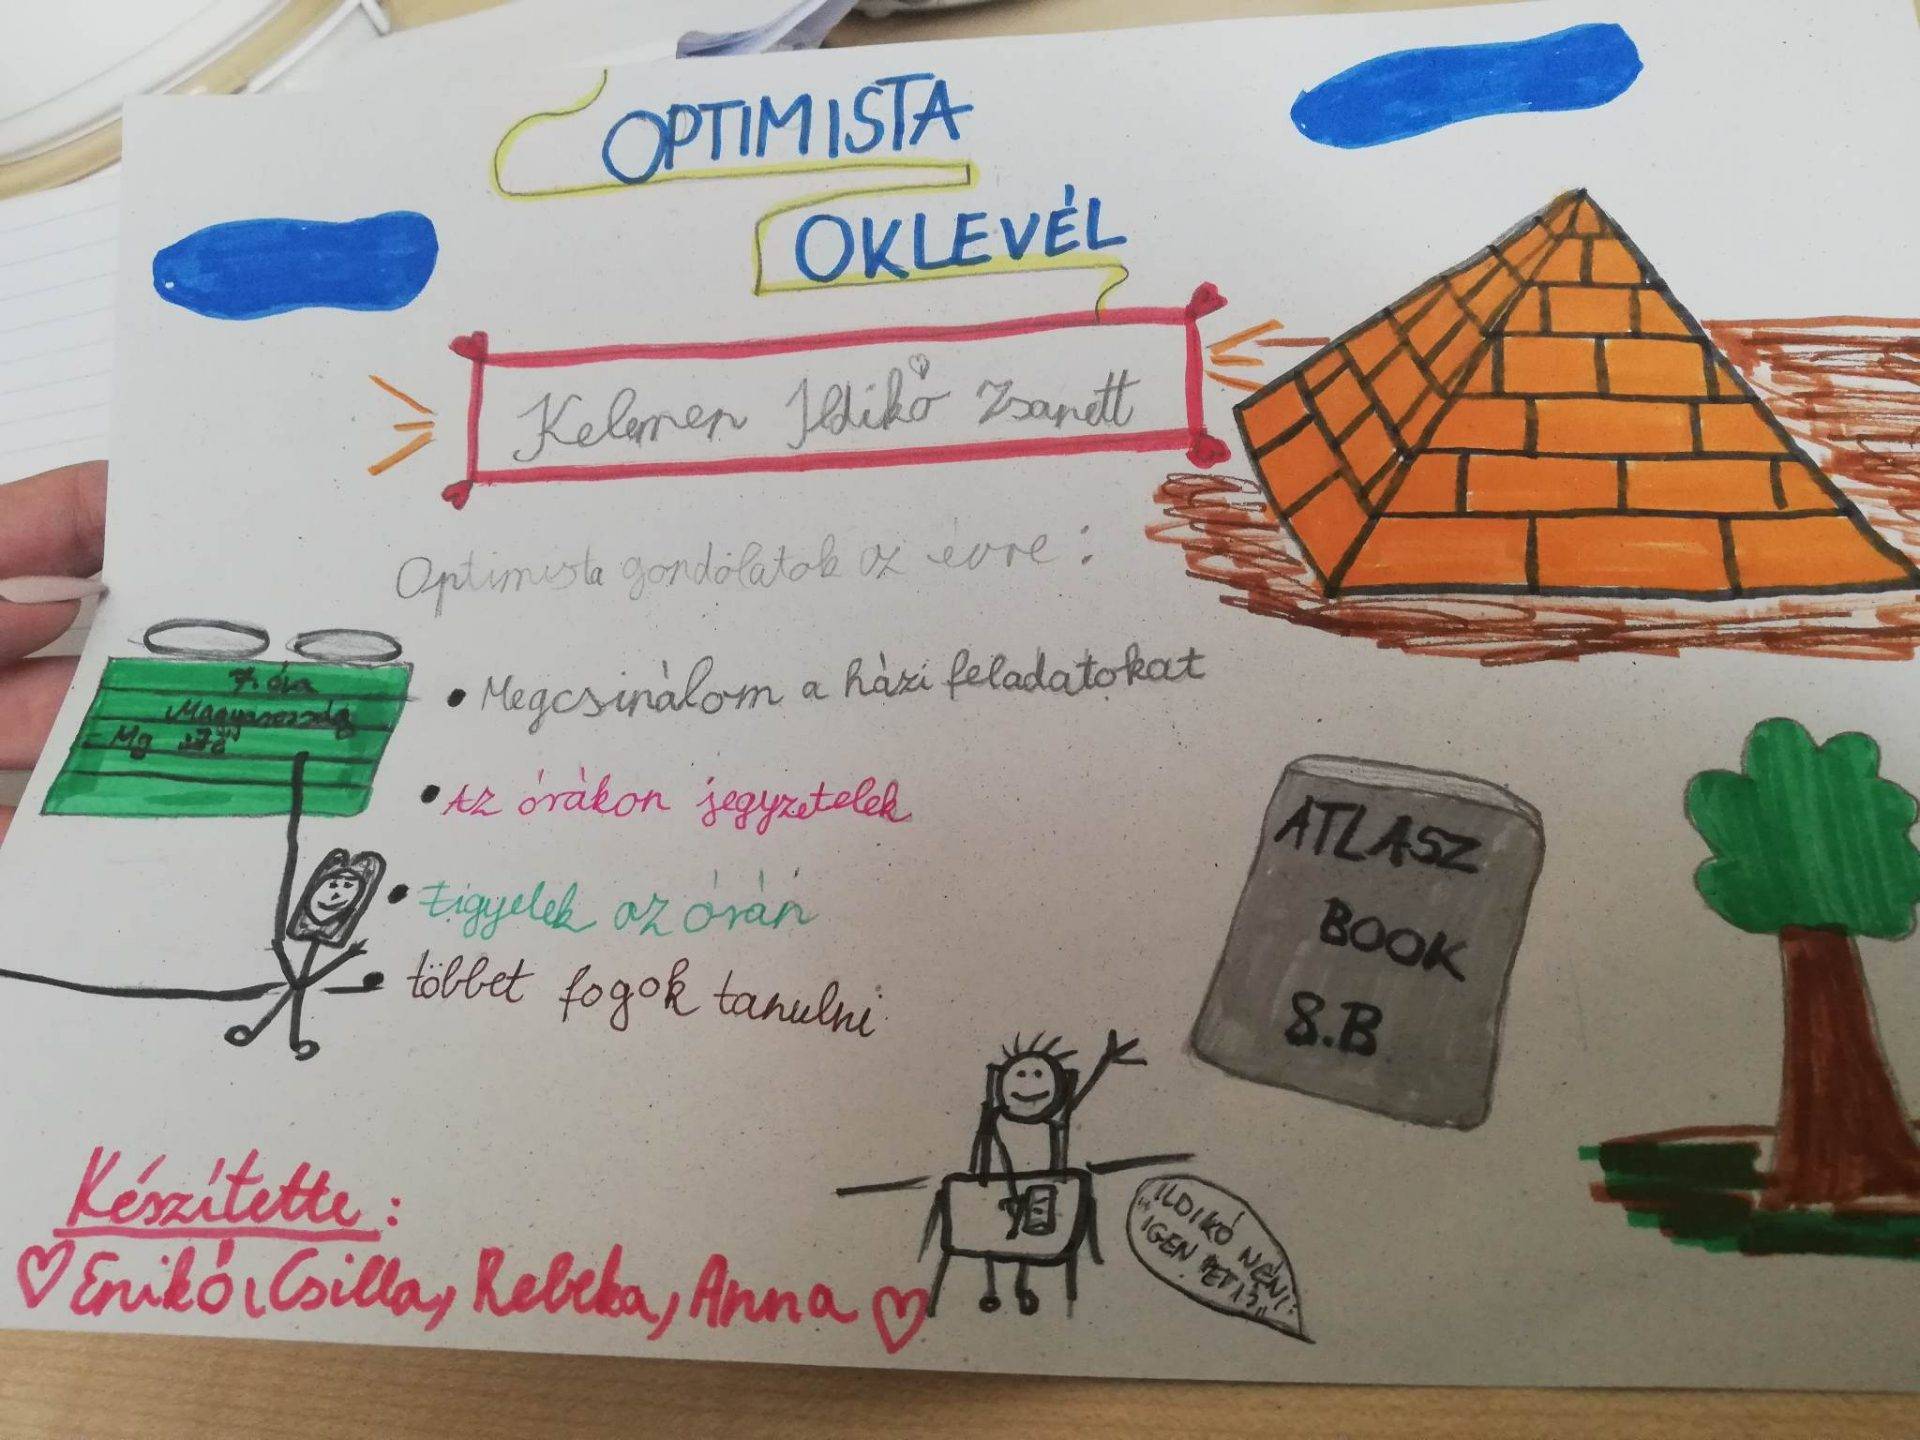 OPTIMISTA
OKLEVÉL
Kelemen Ildikó Zsanett
Optimista gondolatok az évre:
• Megcsinálom a házi feladatokat
• Az órákon jegyzetelek
• Figyelek az órán
• többet fogok tanulni
7. óra
Magyarország
- Mg
ATLASZ
BOOK
8.B
ILDIKÓ NÉNI:
"IGEN PETI?"
Készítette:
Enikő, Csilla, Rebeka, Anna